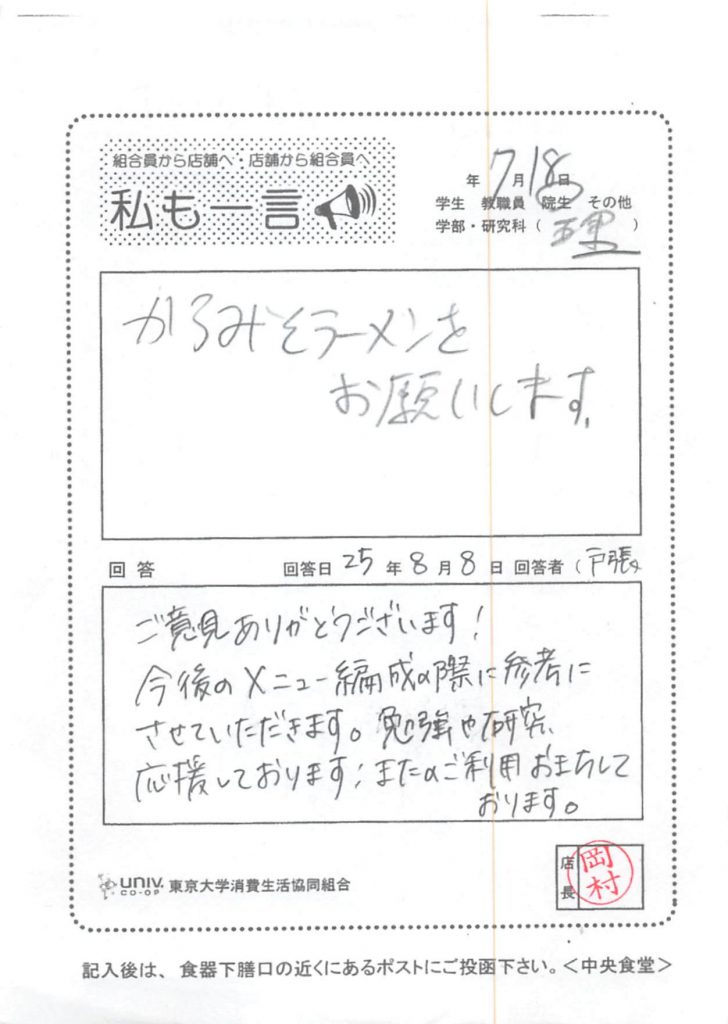 組合員から店舗へ・店舗から組合員へ
私も一言
年7月18日
学生 教職員 院生 その他
学部・研究科(理)
からみそラーメンを
お願いします。
回答 回答日 25年8月8日 回答者(戸張
ご意見ありがとうございます!
今後のメニュー編成の際に参考に
させていただきます。勉強や研究、
応援しております!またのご利用お待ちして
おります。
UNIV. CO-OP 東京大学消費生活協同組合
店長 岡村
記入後は、食器下膳口の近くにあるポストにご投函下さい。<中央食堂>